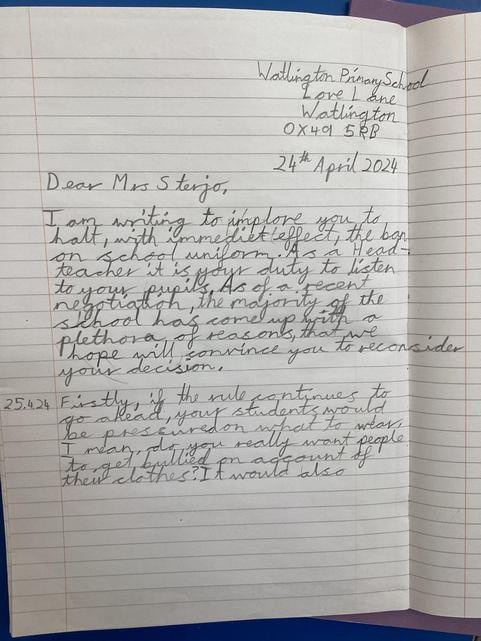 Watlington Primary School
Love Lane
Watlington
OX49 5RB
24th April 2024
Dear Mrs Sterjo,
I am writing to implore you to
halt, with immediet effect, the ban
on school uniform. As a Head-
teacher it is your duty to listen
to your pupils. As of a recent
negotiation, the majority of the
school has come up with a
plethora, of reasons, that we
hope will convince you to reconsider
your decision.
25.4.24 Firstly, if the rule continues to
go ahead, your students would
be pressured on what to wear.
I mean, do you really want people
to get bullied on account of
their clothes? It would also